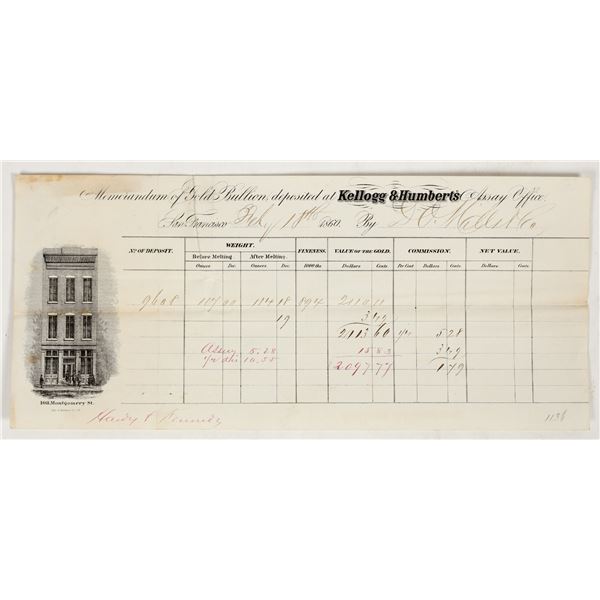 Memorandum of Gold Bullion, deposited at Kellogg & Humberts Assay Office.
San Francisco Feby 18th 1860. By
No. OF DEPOSIT. WEIGHT. FINENESS. VALUE OF THE GOLD. COMMISSION. NET VALUE.
Before Melting. After Melting.
Ounces Dec. Ounces Dec. 1000 ths. Dollars Cents Per Cent Dollars Cents Dollars Cents
9608 114 18 894 2110 11
19 3 49
2113 60 1/4 5 28
Assay 5.28 15 83 3 49
10.55 2097 77 1 79
Kennedy
163, Montgomery St.
1136